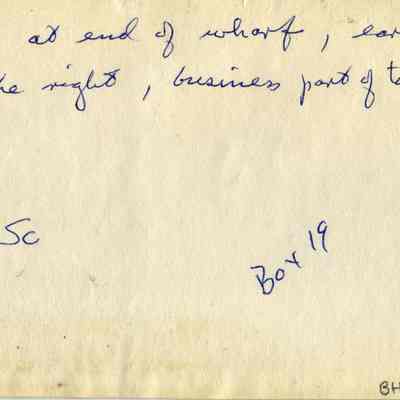 at end of wharf, ear
he right, business part of t
Sc
Box 19
BH